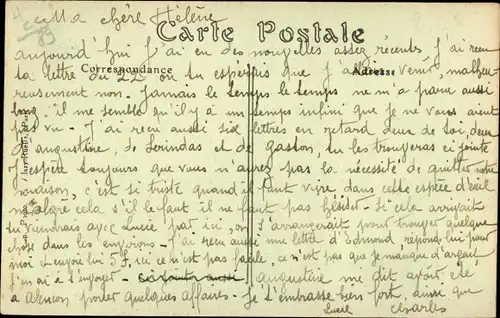 Ma chère Hélène
Carte Postale
aujourd'hui j'ai eu des nouvelles assez récents j'ai reçu
Correspondance
Adresse
ta lettre du 22 où tu espérais que j'allais venir, malheu-
reusement non. Jamais le temps le temps ne m'a paru aussi
long. il me semble qu'il y a un temps infini que je ne vous avait
pas vu. J'ai reçu aussi six lettres en retard deux de toi, deux
d'augustine, de Lorindas et de gaston, tu les trouveras ci jointe
J'espère toujours que vous n'aurez pas la nécessité de quitter notre
maison, c'est si triste quand il faut vivre dans cette espèce d'exil
malgré cela s'il le faut il ne faut pas hésiter. Si cela arrivait
tu viendrais avec Lucie par ici, on s'arrangerait pour trouver quelque
chose dans les environs. J'ai reçu aussi une lettre d'Edmond, répond lui pour
moi et envoie lui 5f, ici ce n'est pas facile, ce n'est pas que je manque d'argent
j'en ai à t'envoyer. augustine me dit avoir été
à Alençon porter quelques affaires. Je t'embrasse bien fort, ainsi que
Lucie Charles